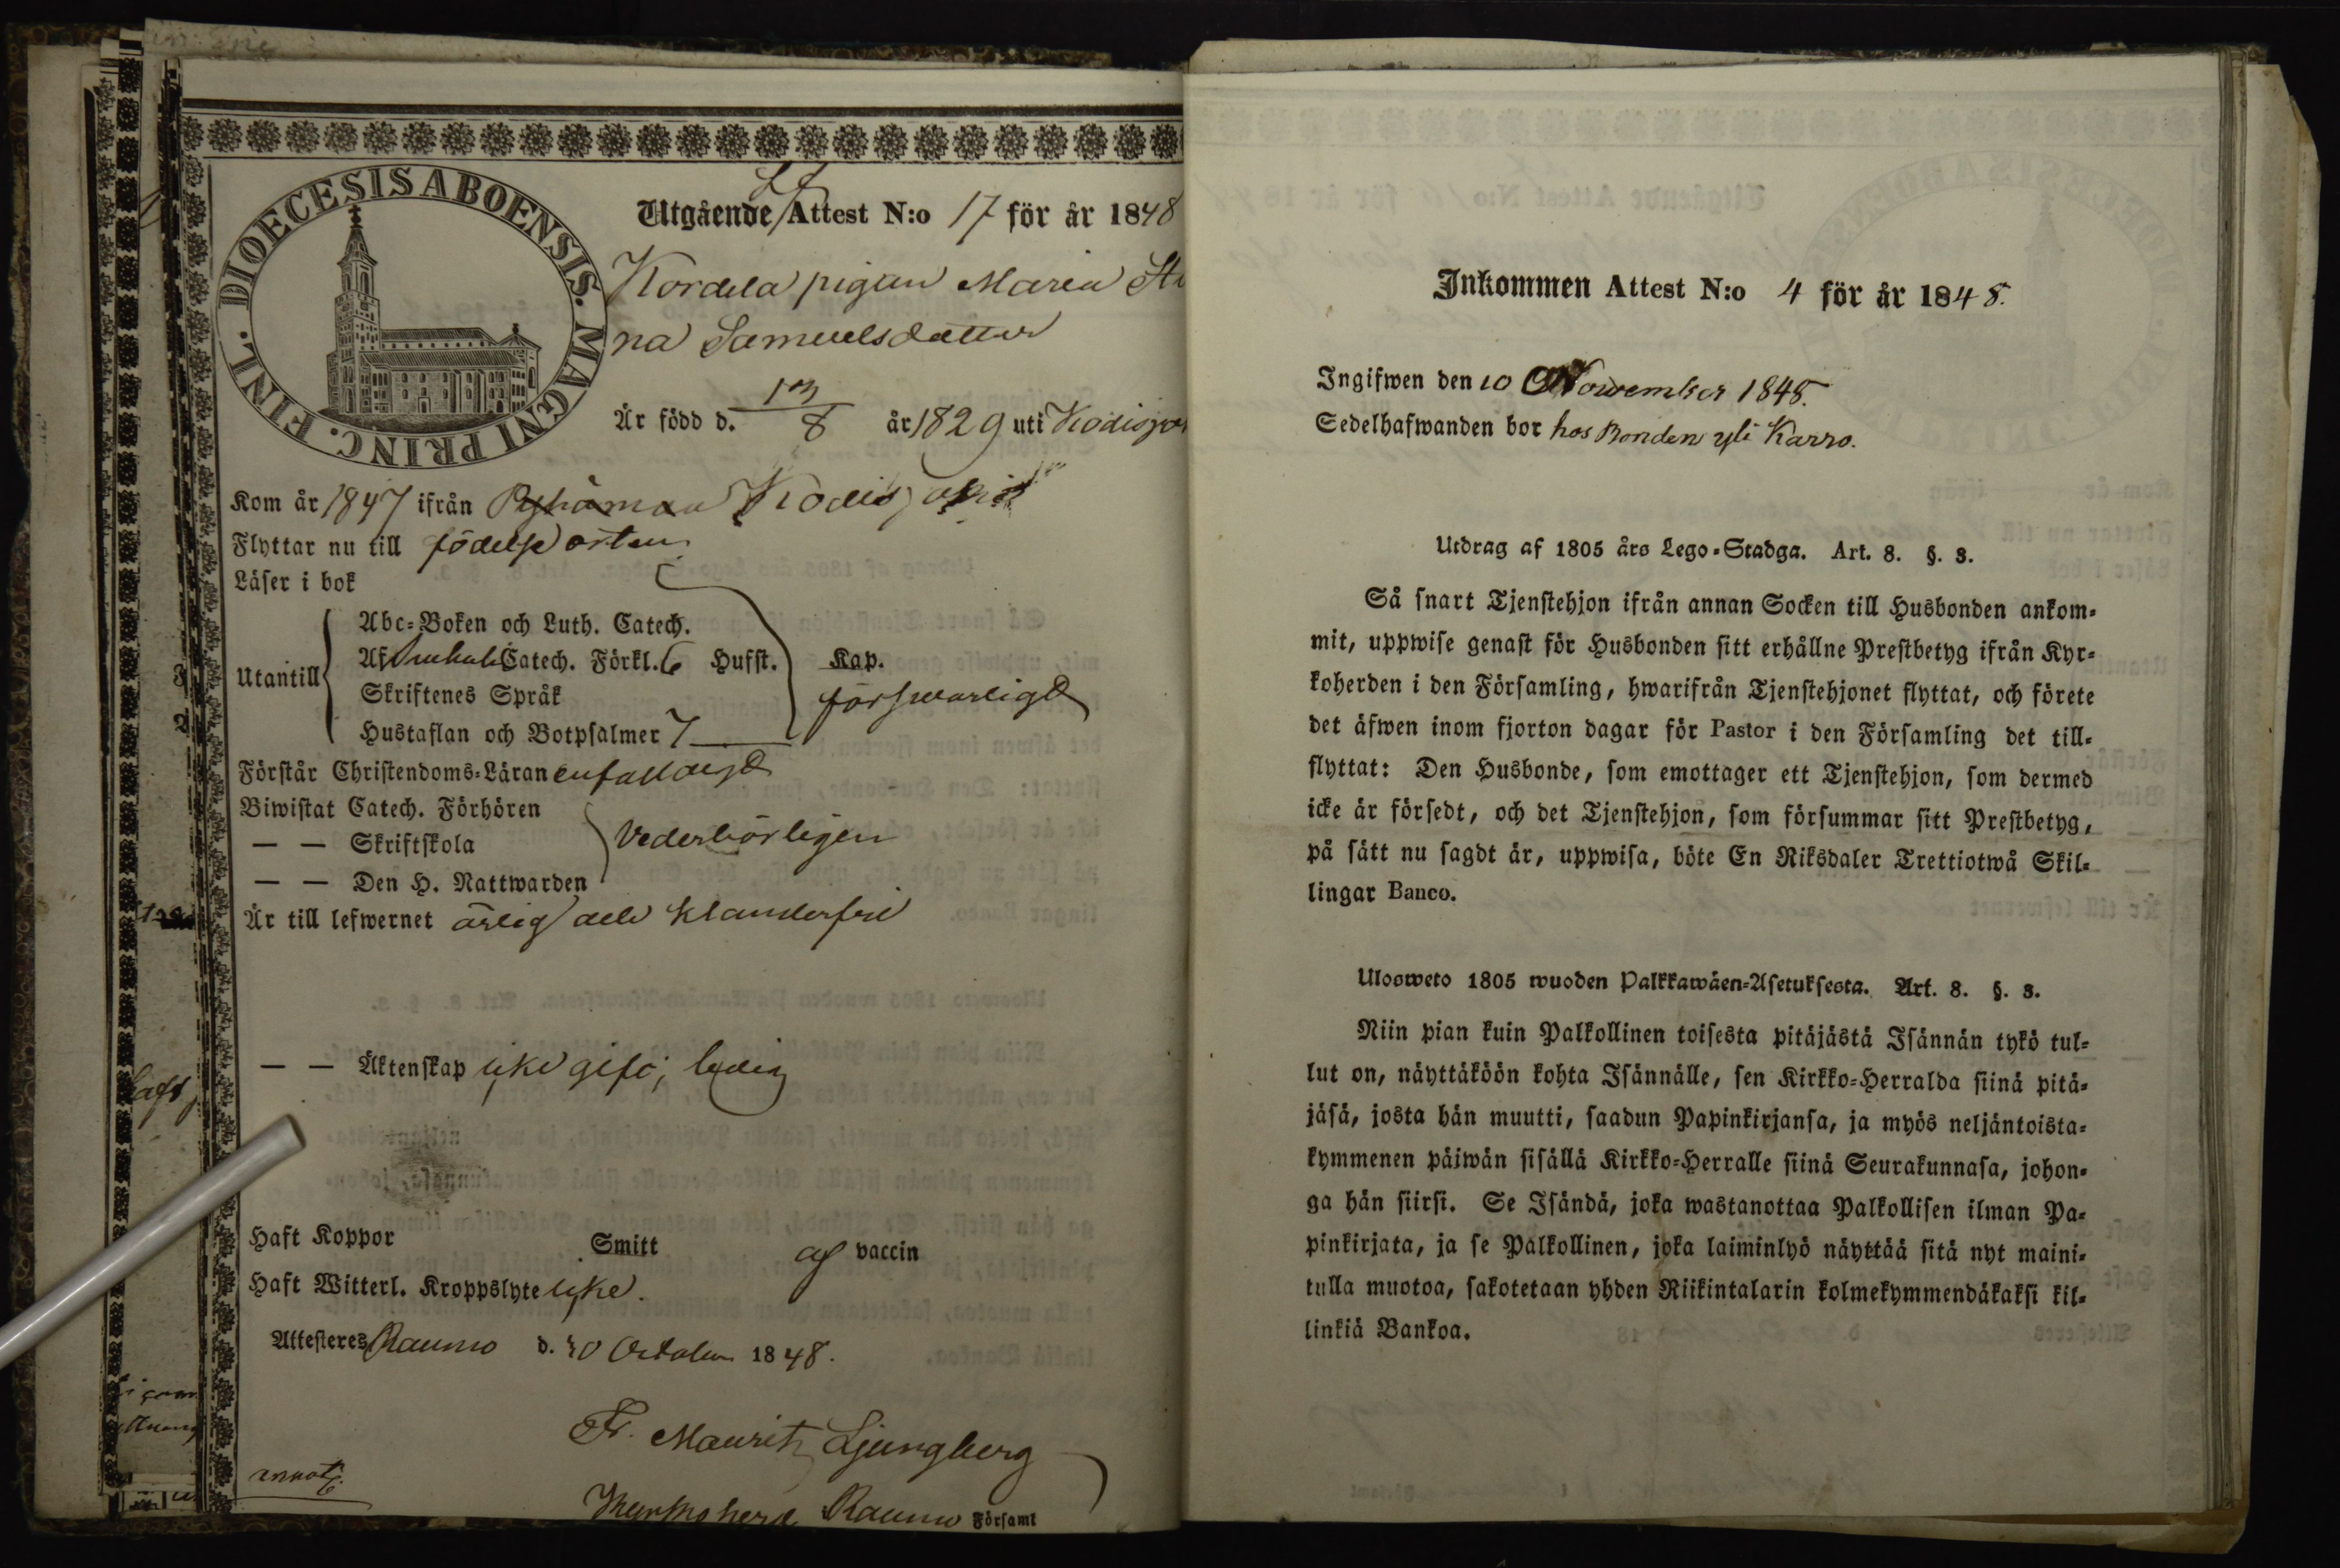 DIOECESIS ABOENSIS. MAGNI PRINC. FINL.
Utgående Attest N:o 17 för år 1848
Kordela pigan Maria Sti
na Samuelsdotter
Är född d. 13/8 år 1829 uti Kodisjok
Kom år 1847 ifrån Kodisjoki
Flyttar nu till födelse orten
Läser i bok
Utantill
Abc-Boken och Luth. Catech.
Af Catech. Förkl. 6 Hufst. Kap.
Skriftenes Språk försvarligt
Hustaflan och Botpsalmer 7
Förstår Christendoms-Läran enfaldigt
Biwistat Catech. Förhören
— — Skriftskola Vederbörligen
— — Den H. Nattwarden
Är till lefwernet ärlig och klanderfri
— — Äktenskap icke gift, ledig
Haft Koppor Smitt af vaccin
Haft Witterl. Kroppslyte icke.
Attesteres Raumo d. 30 October 1848.
Fr. Mauritz Ljungberg
Kyrkoherde Raumo Församl
annot.
Inkommen Attest N:o 4 för år 1848.
Ingifwen den 10 Nowember 1848.
Sedelhafwanden bor hos Bonden yli Karro.
Utdrag af 1805 års Lego-Stadga. Art. 8. §. 3.
Så snart Tjenstehjon ifrån annan Socken till Husbonden ankom-
mit, uppwise genast för Husbonden sitt erhållne Prestbetyg ifrån Kyr-
koherden i den Församling, hwarifrån Tjenstehjonet flyttat, och förete
det äfwen inom fjorton dagar för Pastor i den Församling det till-
flyttat: Den Husbonde, som emottager ett Tjenstehjon, som dermed
icke är försedt, och det Tjenstehjon, som försummar sitt Prestbetyg,
på sätt nu sagdt är, uppwisa, böte En Riksdaler Trettiotwå Skil-
lingar Banco.
Ulosweto 1805 wuoden Palkkawäen-Asetuksesta. Art. 8. §. 3.
Niin pian kuin Palkollinen toisesta pitäjästä Isännän tykö tul-
lut on, näyttäköön kohta Isännälle, sen Kirkko-Herralda siinä pitä-
jäsä, josta hän muutti, saadun Papinkirjansa, ja myös neljäntoista-
kymmenen päiwän sisällä Kirkko-Herralle siinä Seurakunnasa, johon-
ga hän siirsi. Se Isändä, joka wastanottaa Palkollisen ilman Pa-
pinkirjata, ja se Palkollinen, joka laiminlyö näyttää sitä nyt maini-
tulla muotoa, sakotetaan yhden Riikintalarin kolmekymmendäkaksi kil-
linkiä Bankoa.